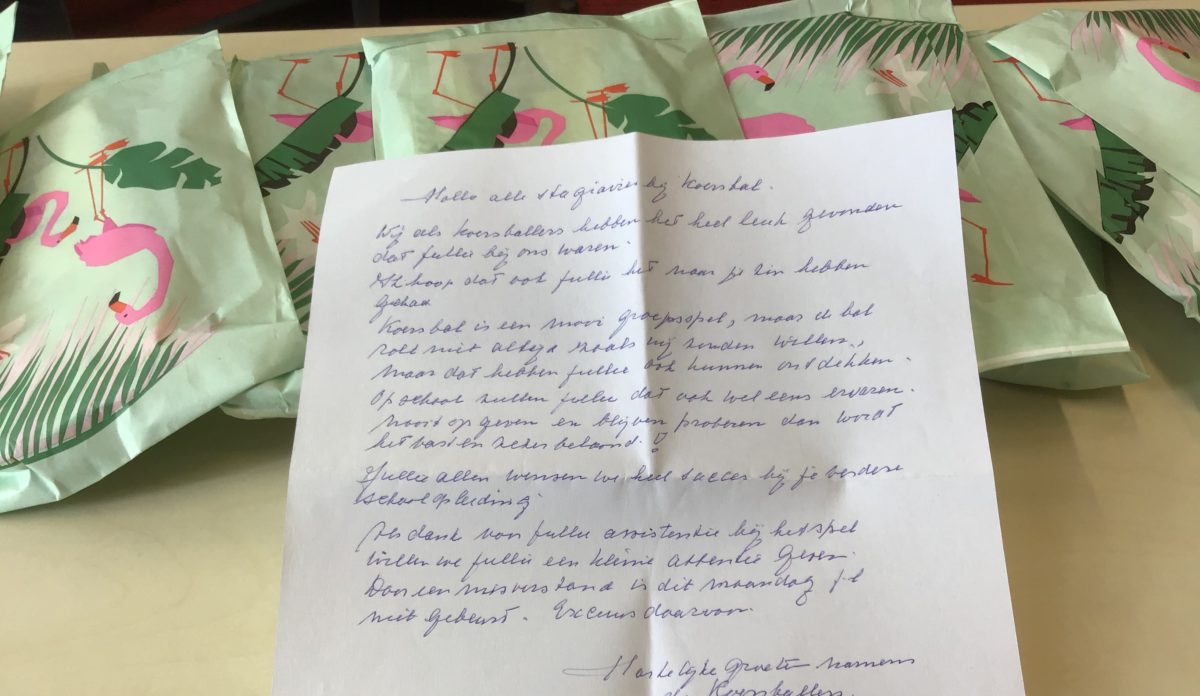 Hallo alle stagiaires bij Koersbal.
Wij als Koersballers hebben het heel leuk gevonden
dat jullie bij ons waren.
Ik hoop dat ook jullie het naar je zin hebben
gehad
Koersbal is een mooi groepsspel, maar de bal
rolt niet altijd zoals wij zouden willen.,
maar dat hebben jullie ook kunnen ontdekken.
Op school zullen jullie dat ook wel eens ervaren.
Nooit op geven en blijven proberen dan wordt
het vast en zeker beloond.!
Jullie allen wensen we heel succes bij je verdere
schoolopleiding.
Als dank voor jullie assistentie bij het spel
willen we jullie een kleine attentie geven.
Door een misverstand is dit maandag jl
niet gebeurt. Excuus daarvoor.
Hartelijke Groeten namens
de Koersballers.